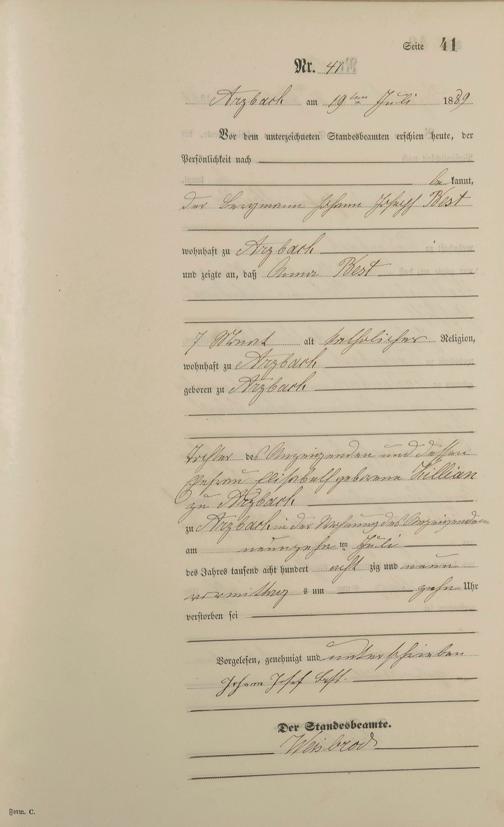 Seite 41
Nr. 41
Arzbach am 19ten Juli 1889
Vor dem unterzeichneten Standesbeamten erschien heute, der
Persönlichkeit nach
be kannt,
der Bergmann Johann Joseph Best
wohnhaft zu Arzbach
und zeigte an, daß Anna Best
7 Monat alt katholischer Religion,
wohnhaft zu Arzbach
geboren zu Arzbach
Tochter des Anzeigenden und dessen
Ehefrau Elisabeth geborene Killian
zu Arzbach
zu Arzbach in der Wohnung des Anzeigenden
am neunzehn ten Juli
des Jahres tausend acht hundert acht zig und neun
vormittag s um zehn Uhr
verstorben sei
Vorgelesen, genehmigt und unterschrieben
Johann Josef Best
Der Standesbeamte.
Weisbrod
Form. C.